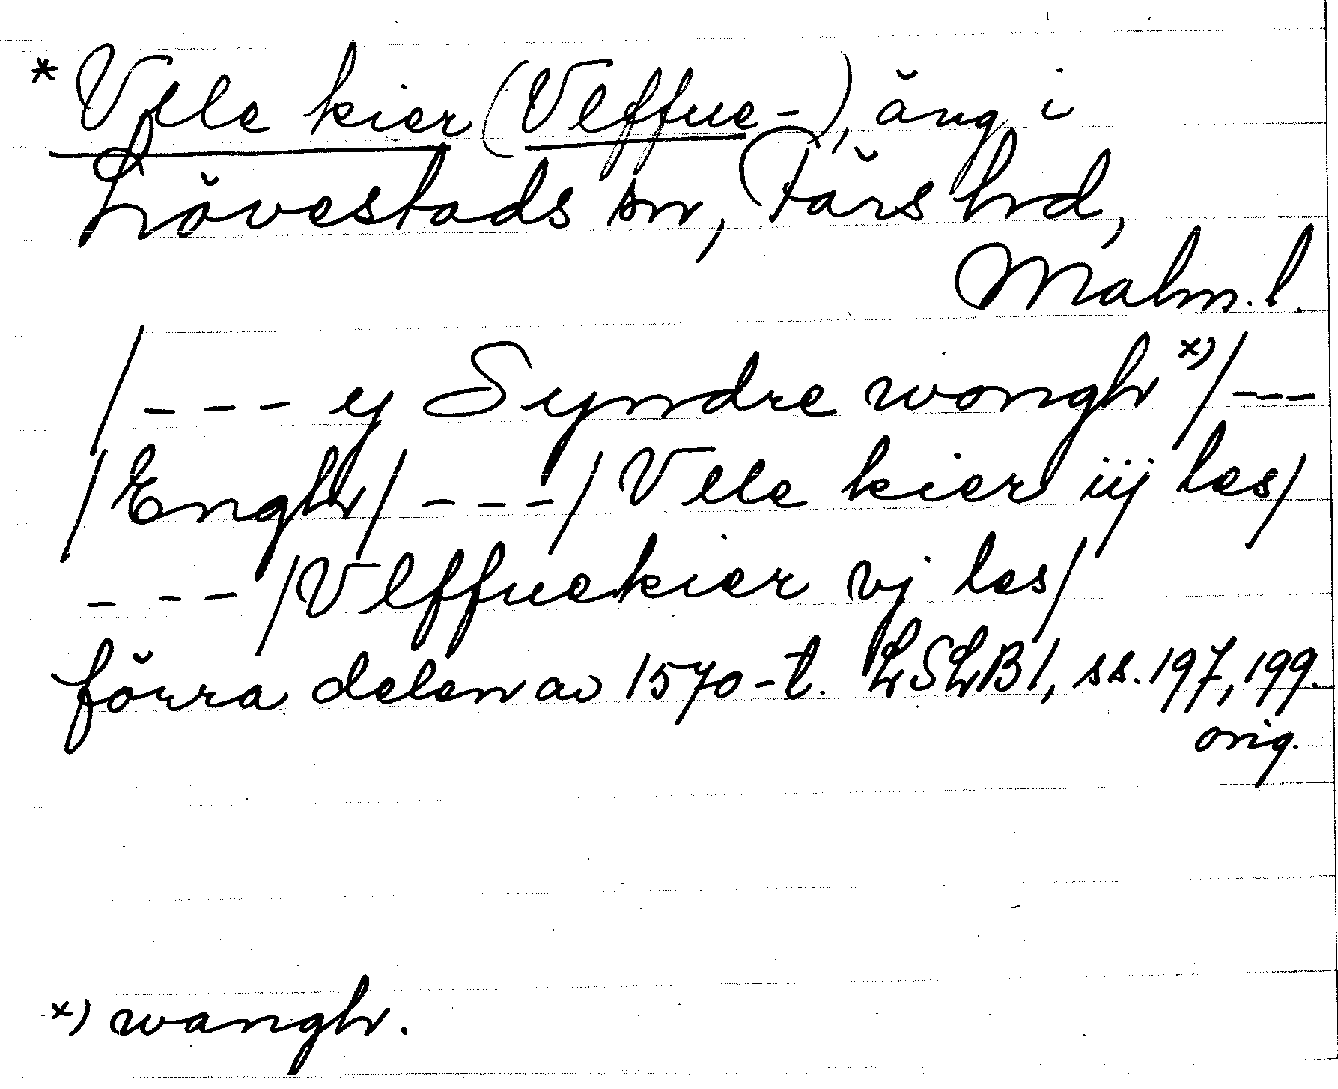 * Vlle kier (Vlffue-), äng i
Lövestads sn, Färs hrd,
Malm. l.
/--- ij Syndre wongh x)/---
/Engh/ ---/ Vlle kier iij les/
--- /Vlffuekier vj les/
förra delen av 1570-t. LSLB 1, ss. 197, 199.
orig.
x) wangh.